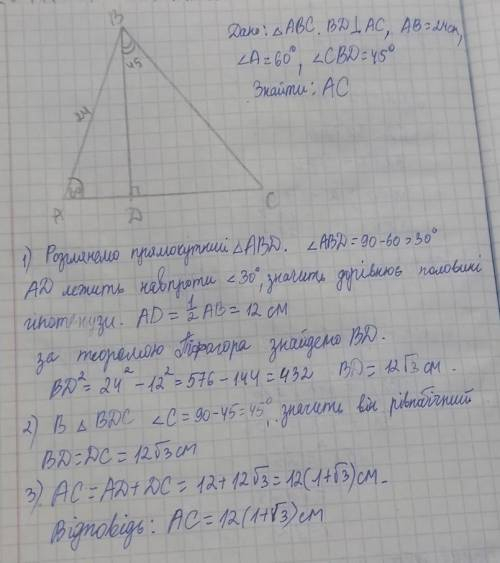 B
45
24
60
A
D
C
Дано: △ABC. BD⊥AC, AB=24см,
∠A=60°, ∠CBD=45°
Знайти: AC
1) Розглянемо прямокутний △ABD. ∠ABD=90-60=30°
AD лежить навпроти ∠30°, значить дорівнює половині
гіпотенузи. AD = 1/2 AB = 12 см
за теоремою Піфагора знайдемо BD.
BD² = 24² - 12² = 576 - 144 = 432 BD = 12√3 см.
2) В △ BDC ∠C = 90-45=45°, значить він рівнобічний
BD = DC = 12√3 см
3) AC = AD + DC = 12 + 12√3 = 12(1+√3) см.
Відповідь: AC = 12(1+√3) см